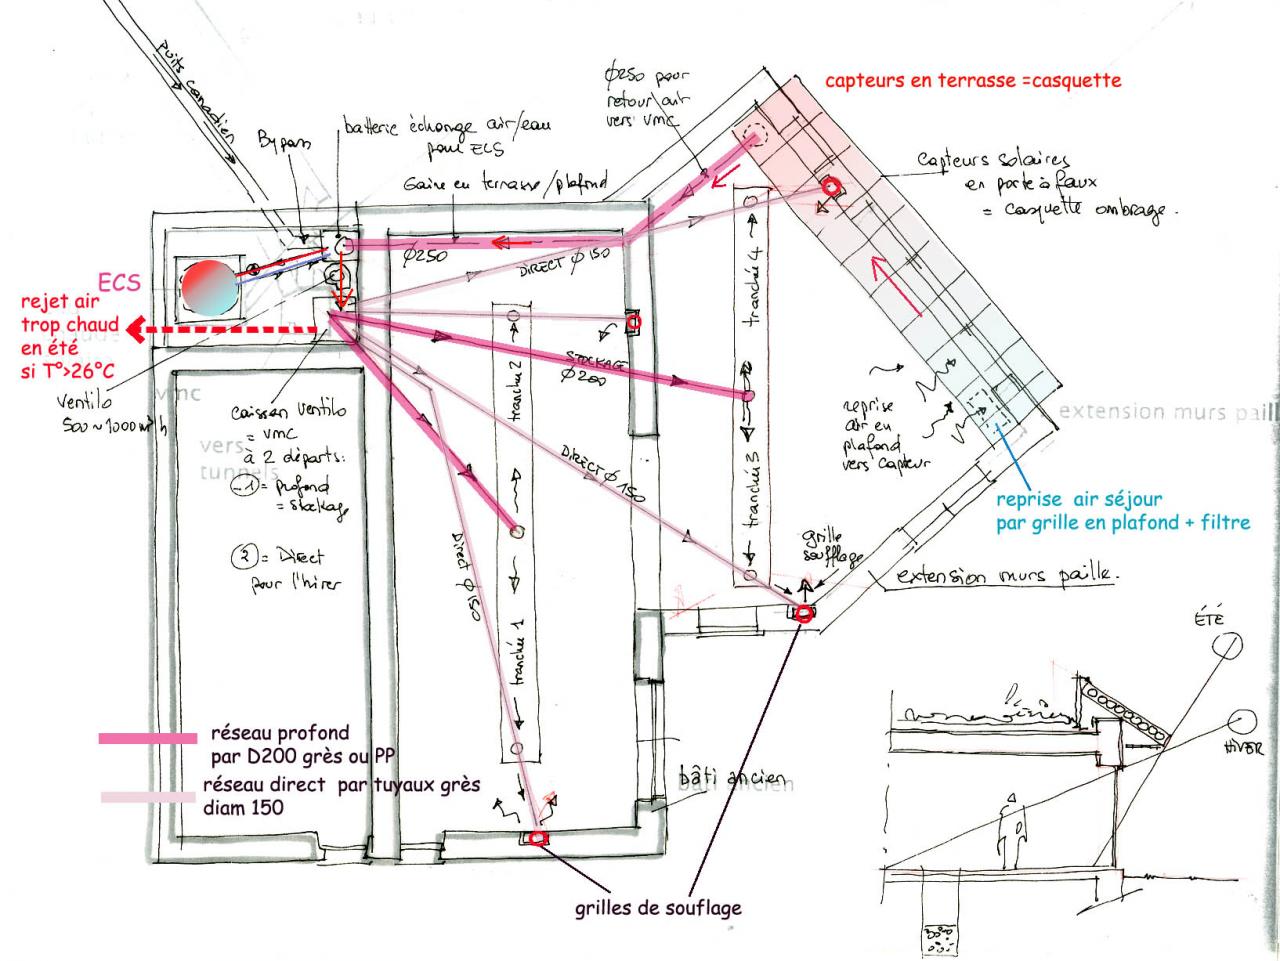 Puits canadien
Bypass
batterie échange air/eau
pour ECS
Gaine en terrasse/plafond
Ø250 pour
retour air
vers vmc
capteurs en terrasse =casquette
capteurs solaires
en porte à faux
= casquette ombrage.
Ø250
DIRECT Ø 150
ECS
rejet air
trop chaud
en été
si T°>26°C
ventilo
500 ~ 1000 m³/h
vmc
vers
tunnels
caisson ventilo
= vmc
à 2 départs:
1 = profond
= stockage
2 = Direct
pour l'hiver
STOCKAGE
Ø200
tranchée 2
tranchée 4
tranchée 3
tranchée 1
DIRECT Ø 150
Direct Ø 150
reprise
air en
plafond
vers capteur
extension murs paill
reprise air séjour
par grille en plafond + filtre
grille
soufflage
extension murs paille.
réseau profond
par D200 grès ou PP
réseau direct par tuyaux grès
diam 150
bâti ancien
bâti ancien
grilles de souflage
ÉTÉ
HIVER